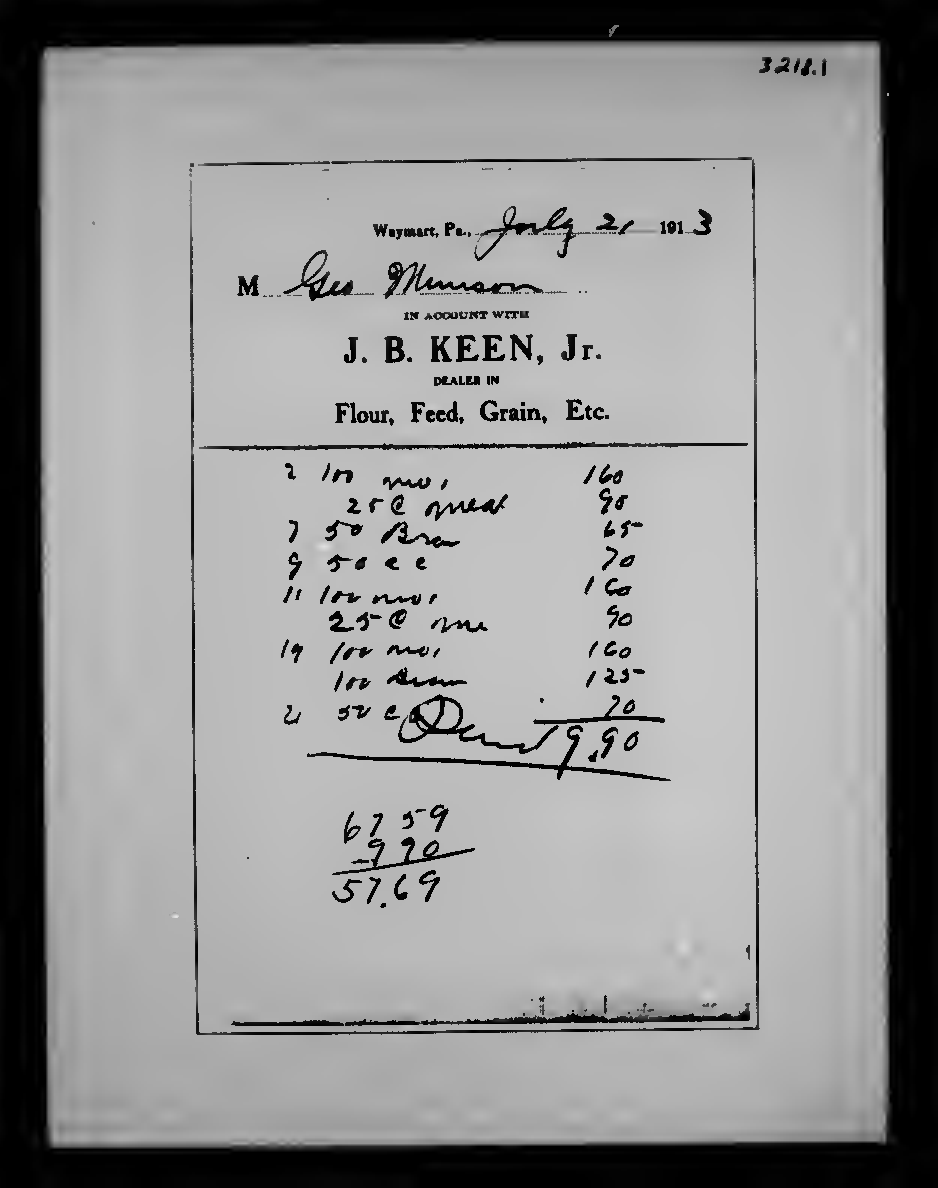 3218.1
Waymart, Pa., July 21 1913
M Geo Munson
IN ACCOUNT WITH
J. B. KEEN, Jr.
DEALER IN
Flour, Feed, Grain, Etc.
2 100 160
25 @ meal 90
7 50 Bran 65
9 50 c c 70
11 100 160
25 @ 90
19 100 160
100 Bran 125
21 50 c 70
9.90
67 59
9 90
57.69